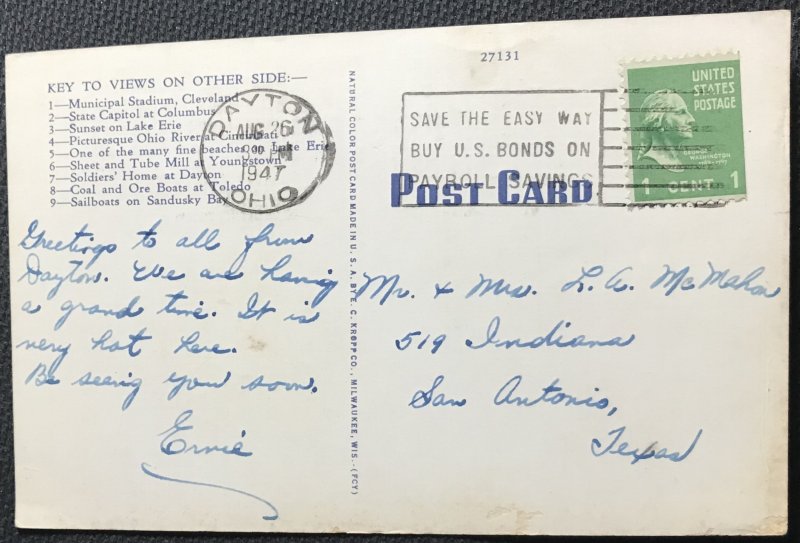 27131
KEY TO VIEWS ON OTHER SIDE:—
1—Municipal Stadium, Cleveland
2—State Capitol at Columbus
3—Sunset on Lake Erie
4—Picturesque Ohio River at Cincinnati
5—One of the many fine beaches on Lake Erie
6—Sheet and Tube Mill at Youngstown
7—Soldiers' Home at Dayton
8—Coal and Ore Boats at Toledo
9—Sailboats on Sandusky Bay
DAYTON
AUG 26
PM
1947
OHIO
SAVE THE EASY WAY
BUY U.S. BONDS ON
PAYROLL SAVINGS
UNITED
STATES
POSTAGE
GEORGE
WASHINGTON
1 CENT 1
POST CARD
NATURAL COLOR POST CARD MADE IN U. S. A. BY E. C. KROPP CO., MILWAUKEE, WIS.-(FCY)
Greetings to all from
Dayton. We are having
a grand time. It is
very hot here.
Be seeing you soon.
Ernie
Mr. & Mrs. L. A. McMahon
519 Indiana
San Antonio,
Texas